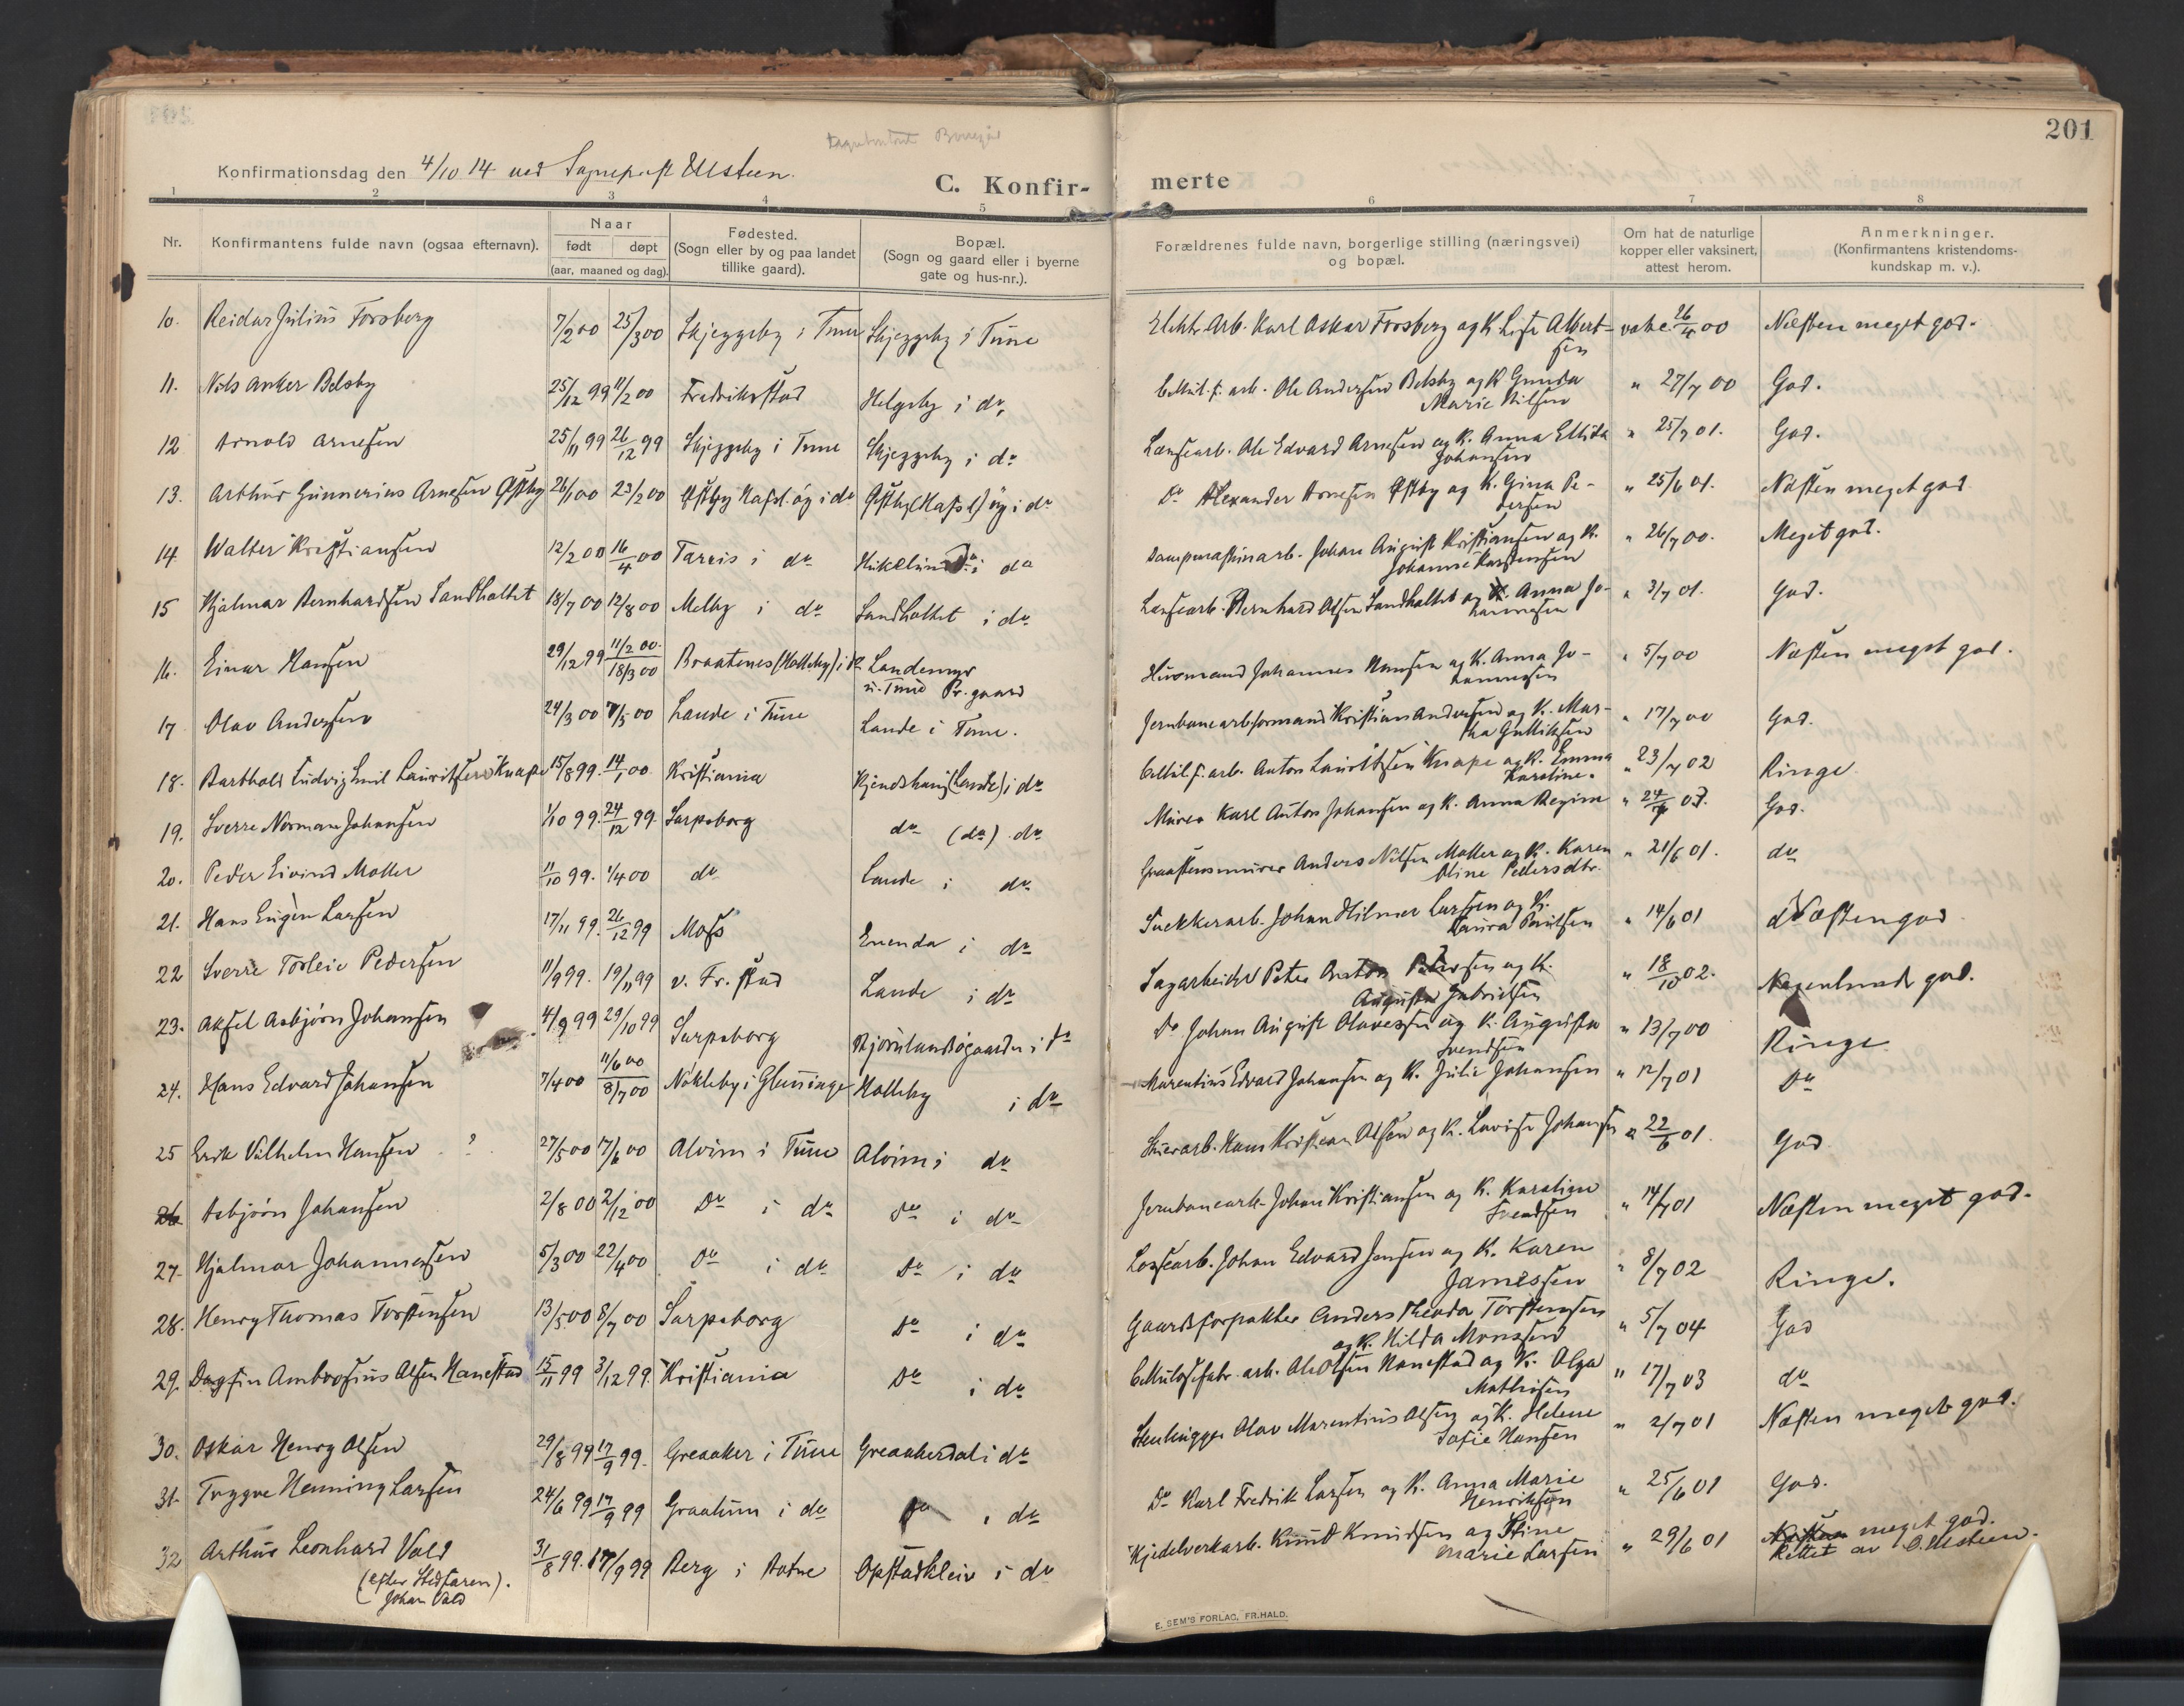 201
Konfirmationsdag den 4/10 14 ved Sogneprest Ellsteen.
C. Konfir- merte
1 2 3 4 5 6 7 8
Nr.
Konfirmantens fulde navn (ogsaa efternavn).
Naar
født døpt
(aar, maaned og dag).
Fødested.
(Sogn eller by og paa landet
tillike gaard).
Bopæl.
(Sogn og gaard eller i byerne
gate og hus-nr.).
Forældrenes fulde navn, borgerlige stilling (næringsvei)
og bopæl.
Om hat de naturlige
kopper eller vaksinert,
attest herom.
Anmerkninger.
(Konfirmantens kristendoms-
kundskap m. v.).
10. Reidar Julius Forsberg 7/2 00 25/3 00 Skjeggeby i Tune Skjeggeby i Tune Elektr. Arb. Karl Oskar Forsberg og K. Lise Albert- vakc. 26/4 00 Næsten meget god.
sen
11. Nils Anker Belsby 25/12 99 11/2 00 Fredrikstad Helgeby i do Cellul. f. arb. Ole Andersen Belsby og K. Gunda " 27/7 00 God.
Marie Nilsen
12 Arnold Arnesen 25/11 99 26/12 99 Skjeggeby i Tune Skjeggeby i do Lænsearb. Ole Edvard Arnesen og K. Anna Ellida " 25/7 01. God.
Johansen
13. Arthur Gunnerius Arnesen Østby 26/1 00 23/2 00 Østby Hafsl. øg i do Østby (Hafsl) øg i do Do Alexander Arnesen Østby og K. Gina Pe- " 25/6 01. Næsten meget god
dersen
14 Walter Kristiansen 12/2 00 16/4 00 Tarris i do i do Dampmaskinarb. Johan August Kristiansen og K. " 26/7 00. Meget god.
Johanne Karstensen
15 Hjalmar Bernhardsen Sandholtet 18/7 00 12/8 00 Melby i do Sandholtet i do Lænsearb. Bernhard Olsen Sandholtet og K. Anna Jo- " 3/7 01. God.
hannesen
16. Einar Hansen 29/12 99 11/2 00. 18/3 00 Braatenes (Holleby) i do Landemyr Husmand Johannes Hansen og K. Anna Jo- " 5/7 00 Næsten meget god.
u. Tune Pr. gaard hannesen
17 Olav Andersen 24/3 00 7/5 00 Lande i Tune Lande i Tune. Jernbanearb.formand Kristian Andersen og K. Mar- " 17/7 00 God.
tha Gulliksen
18. Barthold Ludvig Emil Lauritzsen Knape 15/8 99. 14/1 00. Kristiania Kjendshaug (Lande) i do Cellul. f. arb. Anton Lauritzsen Knape og K. Emma " 23/7 02 Ringe
Karoline.
19. Sverre Norman Johansen 1/10 99. 24/12 99. Sarpsborg do (do) do Murer Karl Anton Johansen og K. Anna Regine " God.
20. Peder Eivind Moller 11/10 99. 1/4 00 do Lande i do Graastensmurer Anders Nilsen Moller og K. Karen " 21/6 01. do
Oline Pedersdtr.
21. Hans Eugen Larsen 17/11 99. 26/12 99 Moss Enenda i do Snekkerarb. Johan Hilmer Larsen og K. " 14/6 01 Næsten god
Laura Paulsen
22 Sverre Torleiv Pedersen 11/9 99. 19/11 99 v. Fr. stad Lande i do Sagarbeider Peter Anton Pedersen og K. " 18/10 02. Nogenlunde god.
Augusta Gabrielsen
23. Aksel Asbjørn Johansen 4/9 99 29/10 99 Sarpsborg i do Do Johan August Olavesen og K. Augusta " 13/7 00 Ringe
Svendsen
24. Hans Edvard Johansen 7/4 00 11/6 00 8/7 00 Nokleby i Glemminge Holleby i do Marentius Edvard Johansen og K. Julie Johansen " 12/7 01 Do
25 Erik Vilhelm Hansen ? 27/5 00 17/6 00 Alvim i Tune Alvim i do Skierarb. Hans Kristian Olsen og K. Lovise Johansen " 22/6 01. God
26 Asbjørn Johansen 2/8 00 2/12 00 Do i do Do i do Jernbanearb. Johan Kristiansen og K. Karoline " 14/7 01 Næsten meget god.
Svendsen
27. Hjalmar Johannessen 5/3 00 22/4 00 Do i do Do i do Lossearb. Johan Edvard Jensen og K. Karen " 8/7 02 Ringe.
Jamissen
28. Henry Thomas Torstensen 13/5 00 8/7 00 Sarpsborg Do i do Gaardsforpakter Anders Theodor Torstensen " 5/7 04 God
og K. Hilda Monssen
29. Dagfin Ambrosius Olsen Hanestad 15/11 99 3/12 99. Kristiania Do i do Cellulosefabr. arb. Ole Olsen Hanestad og K. Olga " 17/7 03 do
Mathisen
30. Oskar Henry Olsen 29/8 99 17/9 99. Greaaker i Tune Greaakerdal i do Stenhugger Olav Marentius Olsen og K. Helene " 2/7 01 Næsten meget god.
Sofie Hansen
31. Trygve Henning Larsen 24/6 99 17/9 99 Graalum i do Do i do Do Karl Fredrik Larsen og K. Anna Marie " 25/6 01 God.
Henriksen
32 Arthur Leonhard Vold 31/8 99. 17/9 99 Berg i Rolvsø Opstadkleiv i do Kjedelverkarb. Knud Knudsen og Stine " 29/6 01 Næsten meget god.
(efter Stedfaren). Marie Larsen Rettet av O. Ellsteen.
Johan Vold
E. SEM'S FORLAG, FR.HALD.